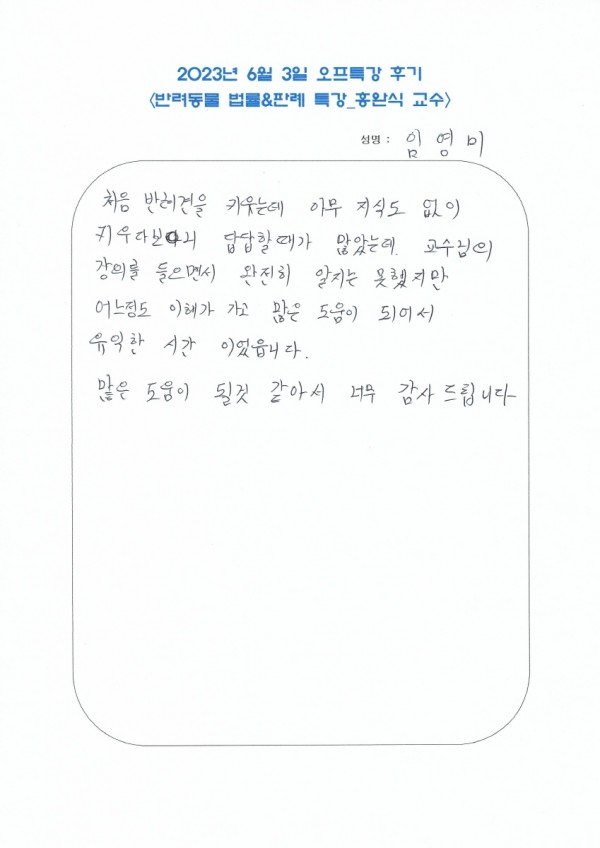 2023년 6월 3일 오프특강 후기
<반려동물 법률&판례 특강_홍완식 교수>
성명 : 임영미
처음 반레견을 키웃는데 아무 지식도 없이
키우다보니 답답할때가 많았는데. 교수님의
강의를 들으면서 완전히 알지는 못했지만
어느정도 이해가 가고 많은 도움이 되어서
유익한 시간 이었읍니다.
많은 도움이 될것 같아서 너무 감사드립니다